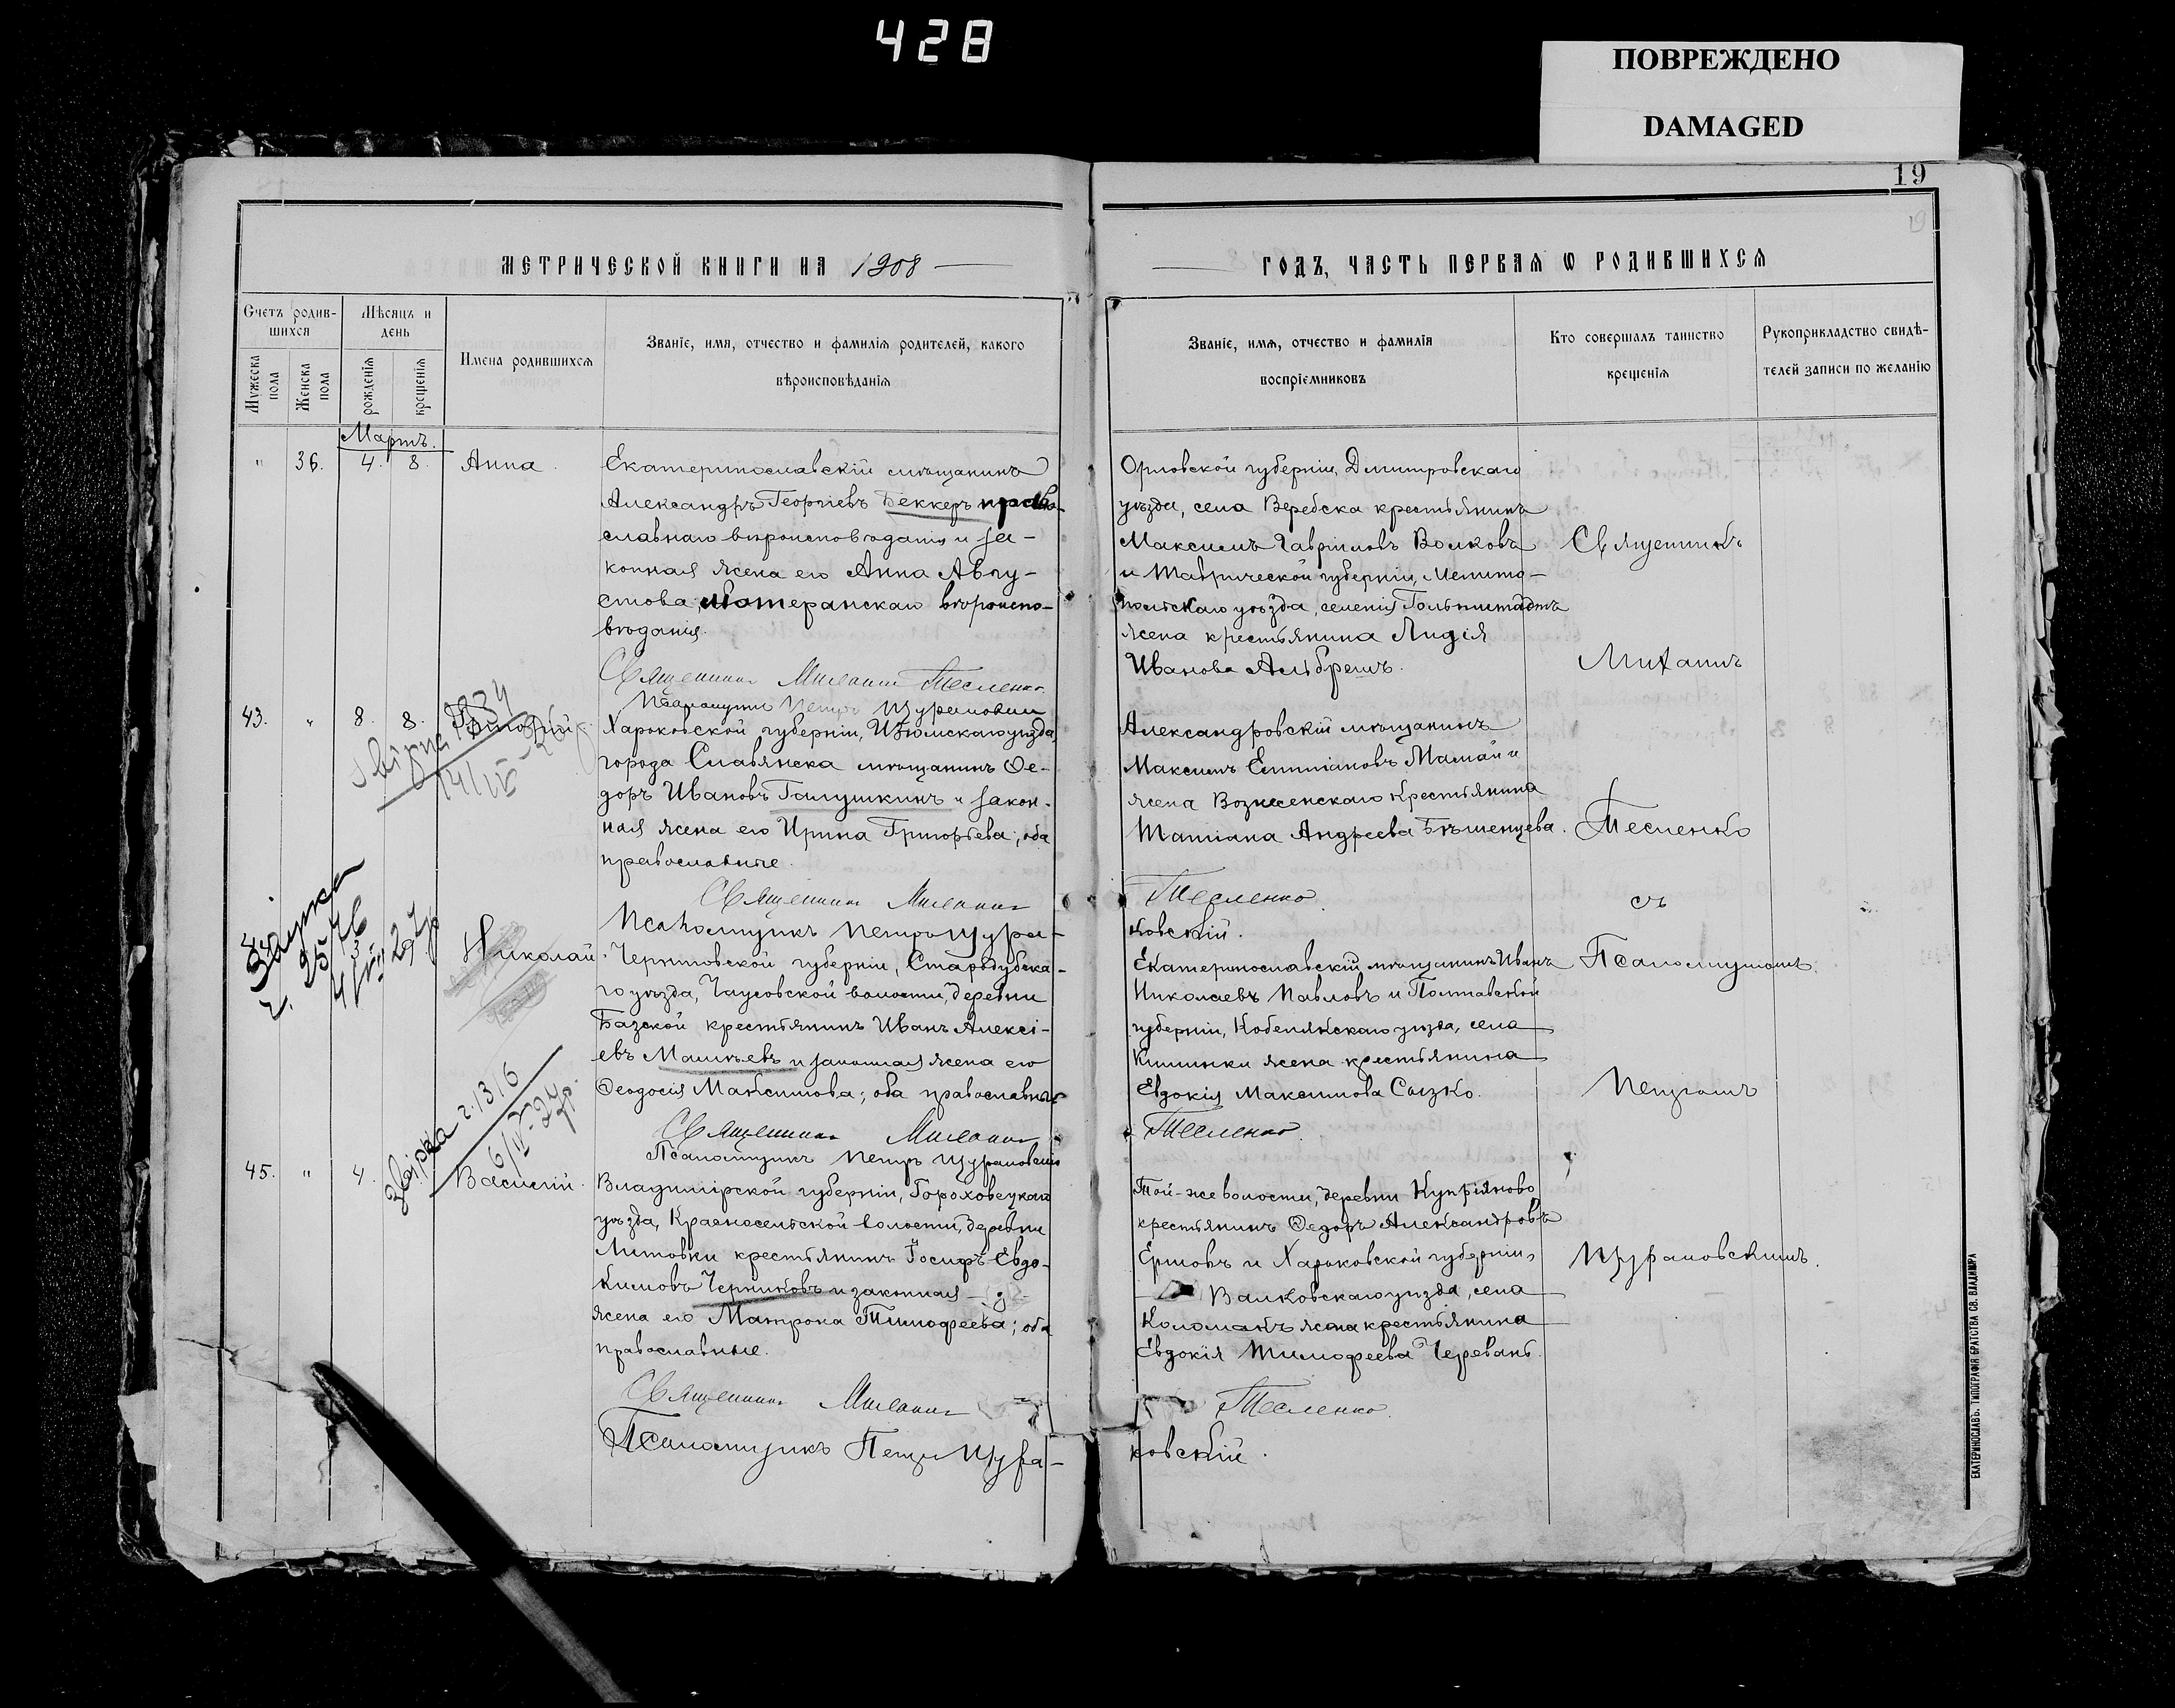 428
ПОВРЕЖДЕНО
DAMAGED
19
МЕТРИЧЕСКОЙ КНИГИ НА 1908
Счетъ родив-
шихся
Мѣсяцъ и
день
Мужеска
пола
Женска
пола
рожденія
крещенія
Имена родившихся
Званіе, имя, отчество и фамилія родителей, какого
вѣроисповѣданія
Мартъ.
" 36. 4. 8. Анна.
Екатеринославскій мѣщанинъ
Александръ Георгіевъ Беккеръ право-
славнаго вѣроисповѣданія и за-
конная жена его Анна Авгу-
стова, лютеранскаго вѣроиспо-
вѣданія.
Священникъ Михаилъ Тесленко
Псаломщикъ Петръ Щурановскій
43. " 8. 8.
14/VII
Харьковской губерніи, Изюмскаго уѣзда,
города Славянска мѣщанинъ Ѳе-
доръ Ивановъ Галушкинъ и закон-
ная жена его Ирина Григорьева; оба
православные.
Священникъ Михаилъ
Псаломщикъ Петръ Щура-
2576
Николай.
Черниговской губерніи, Стародубска-
го уѣзда, Чаусовской волости, деревни
Базской крестьянинъ Иванъ Алексі-
евъ и законная жена его
Ѳеодосія Максимова; оба православные
Священникъ Михаилъ
Псаломщикъ Петръ Щурановскій
г. 1316
6/IV-24 р.
45. " 4. Василій.
Владимірской губерніи, Гороховецкаго
уѣзда, Красносельской волости, деревни
Литовки крестьянинъ Іосифъ Евдо-
кимовъ Черниковъ и законная
жена его Матрона Тимофеева; оба
православные.
Священникъ Михаилъ
Псаломщикъ Петръ Щура-
ГОДЪ, ЧАСТЬ ПЕРВАЯ Ѡ РОДИВШИХСЯ
Званіе, имя, отчество и фамилія
воспріемниковъ
Кто совершалъ таинство
крещенія
Рукоприкладство свидѣ-
телей записи по желанію
Орловской губерніи, Дмитровскаго
уѣзда, села Веребска крестьянинъ
Максимъ Гавріиловъ Волковъ
и Таврической губерніи, Мелито-
польскаго уѣзда, селенія Гольпштадтъ
жена крестьянина Лидія
Иванова Альбрехтъ.
Александровскій мѣщанинъ
Максимъ Мамай и
жена Вознесенскаго крестьянина
Татіана Андреева Бѣшенцева.
Тесленко
ковскій.
Екатеринославскій мѣщанинъ Иванъ
Николаевъ Павловъ и Полтавской
губерніи, Кобелякскаго уѣзда, села
Кишинки жена крестьянина
Евдокія Максимова Сызко.
Тесленко
Той-же волости, деревни Купріяново
крестьянинъ Ѳедоръ Александровъ
Ершовъ и Харьковской губерніи,
Валковскаго уѣзда, села
Коломакъ жена крестьянина
Евдокія Тимофеева Черевань.
Тесленко
ковскій.
Священникъ
Михаилъ
Тесленко
съ
Псаломщикомъ
Петромъ
Щурановскимъ.
ЕКАТЕРИНОСЛАВЪ. ТИПОГРАФІЯ БРАТСТВА СВ. ВЛАДИМІРА